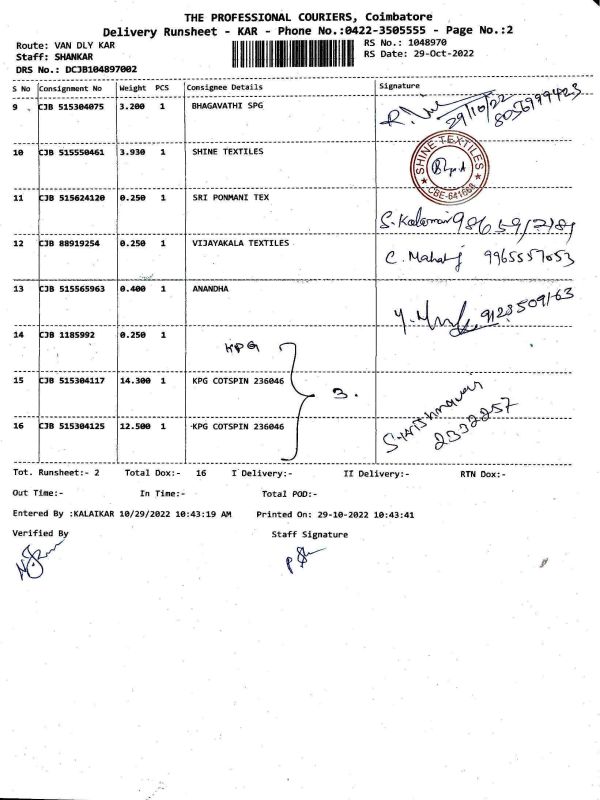 THE PROFESSIONAL COURIERS, Coimbatore
Delivery Runsheet - KAR - Phone No.:0422-3505555 - Page No.:2
Route: VAN DLY KAR
RS No.: 1048970
Staff: SHANKAR
RS Date: 29-Oct-2022
DRS No.: DCJB104897002
S No Consignment No Weight PCS Consignee Details Signature
9 CJB 515304075 3.200 1 BHAGAVATHI SPG
29/10/22
10 CJB 515550461 3.930 1 SHINE TEXTILES
SHINE TEXTILES
CBE-641668
11 CJB 515624120 0.250 1 SRI PONMANI TEX
12 CJB 88919254 0.250 1 VIJAYAKALA TEXTILES
9965557053
13 CJB 515565963 0.400 1 ANANDHA
9123509163
14 CJB 1185992 0.250 1
KPG
15 CJB 515304117 14.300 1 KPG COTSPIN 236046
3.
16 CJB 515304125 12.500 1 KPG COTSPIN 236046
2332257
Tot. Runsheet:- 2 Total Dox:- 16 I Delivery:- II Delivery:- RTN Dox:-
Out Time:- In Time:- Total POD:-
Entered By :KALAIKAR 10/29/2022 10:43:19 AM Printed On: 29-10-2022 10:43:41
Verified By Staff Signature